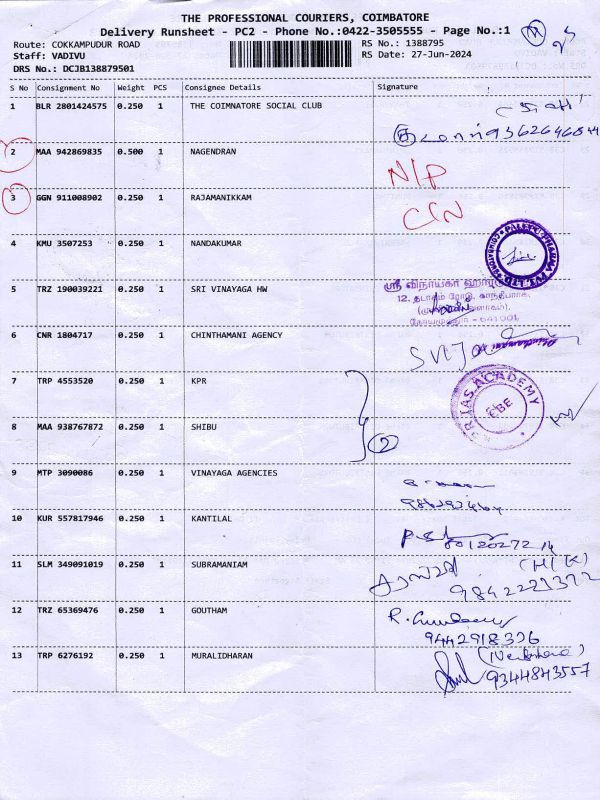 THE PROFESSIONAL COURIERS, COIMBATORE
Delivery Runsheet - PC2 - Phone No.:0422-3505555 - Page No.:1
Route: COKKAMPUDUR ROAD RS No.: 1388795
Staff: VADIVU RS Date: 27-Jun-2024
DRS No.: DCJB138879501
S No Consignment No Weight PCS Consignee Details Signature
1 BLR 2801424575 0.250 1 THE COIMNATORE SOCIAL CLUB
9362646844
2 MAA 942869835 0.500 1 NAGENDRAN N/P
3 GGN 911008902 0.250 1 RAJAMANIKKAM C/N
4 KMU 3507253 0.250 1 NANDAKUMAR
5 TRZ 190039221 0.250 1 SRI VINAYAGA HW
ஸ்ரீ விநாயகா
12, தடாகம் ரோடு,
- 641001.
6 CNR 1804717 0.250 1 CHINTHAMANI AGENCY
7 TRP 4553520 0.250 1 KPR
ACADEMY
CBE
8 MAA 938767872 0.250 1 SHIBU
2
9 MTP 3090086 0.250 1 VINAYAGA AGENCIES
10 KUR 557817946 0.250 1 KANTILAL
11 SLM 349091019 0.250 1 SUBRAMANIAM
12 TRZ 65369476 0.250 1 GOUTHAM
9442918326
13 TRP 6276192 0.250 1 MURALIDHARAN
9344843557